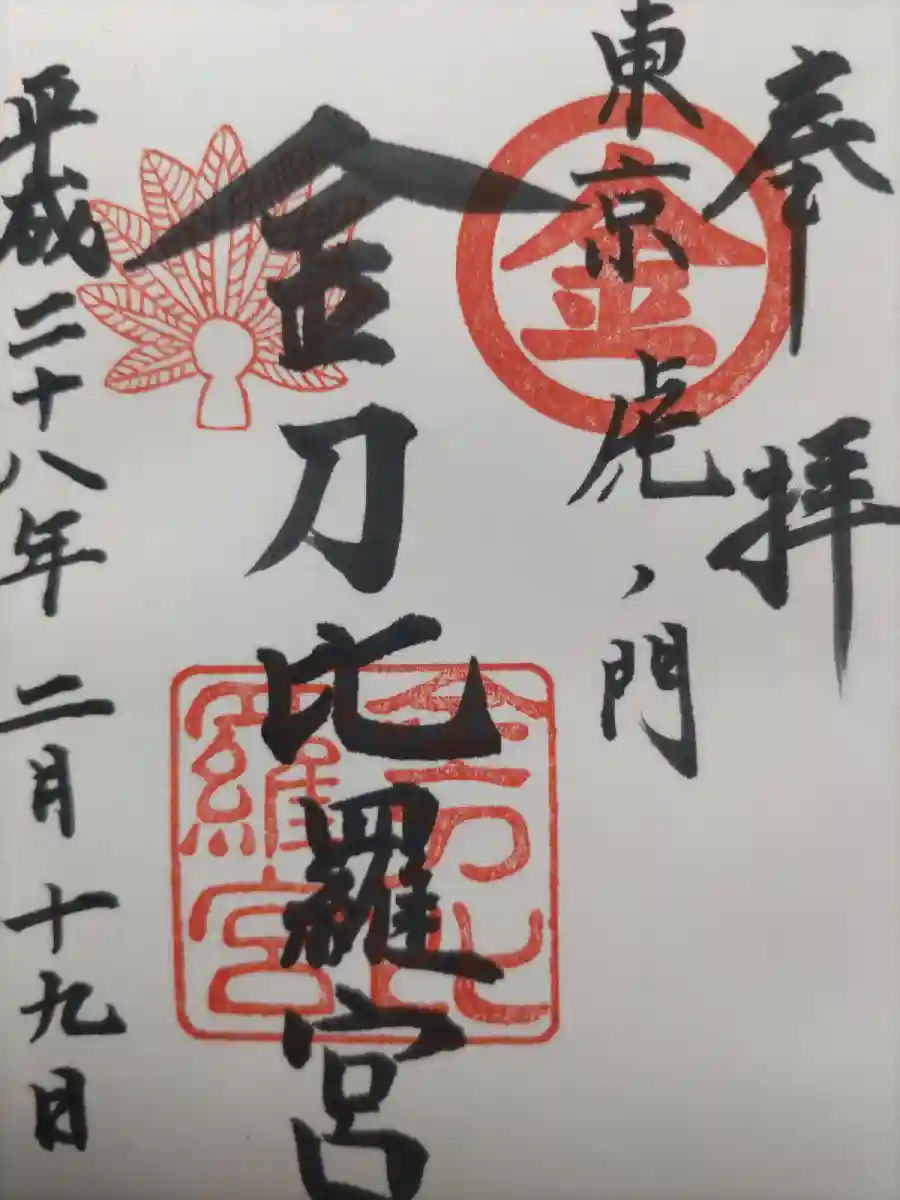 奉拝
東京虎ノ門
金
金刀比羅宮
金刀比羅宮
平成二十八年二月十九日